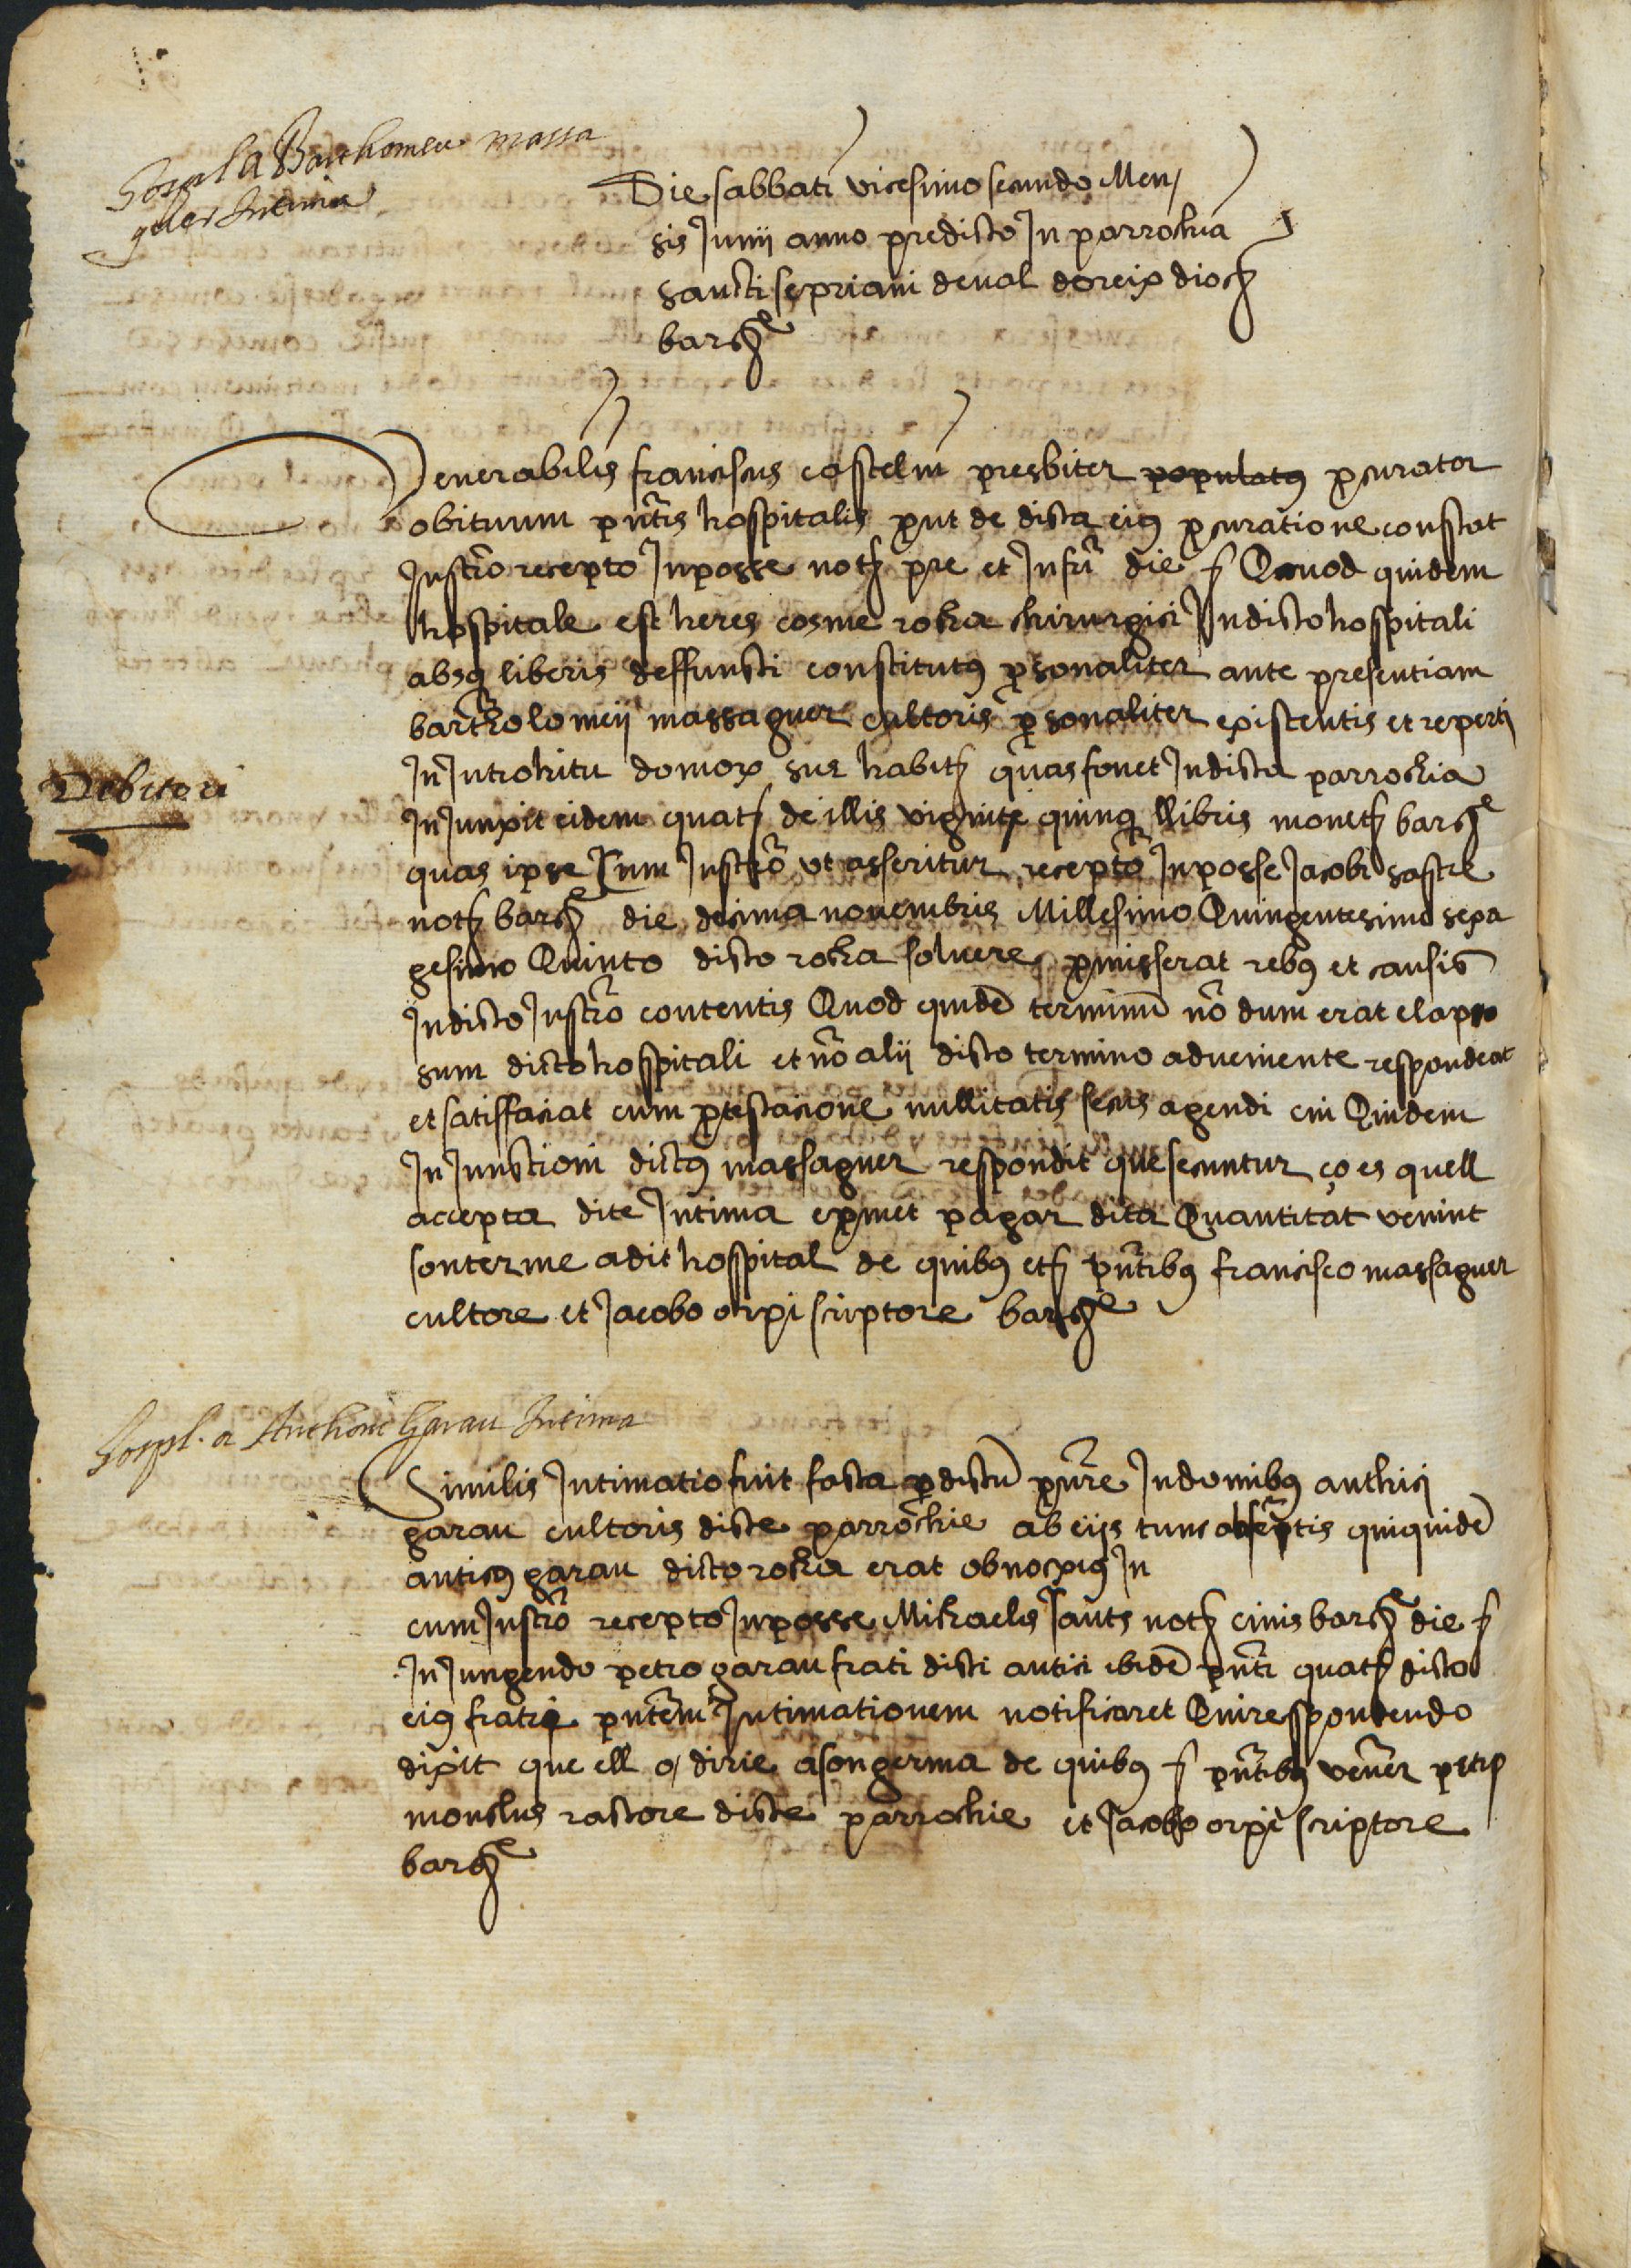 Hospl a Barthomeu massa
guer Intima
Die sabbati vicesimo secundo Men
sis Junij anno predicto In parrochia
sancti sepriani de val doreix dioc
barcͤ
Venerabilis franciscus castelui presbiter populatus pcurator
obituum pñtis hospitalis put de dicta eius pcuratione constat
Instrõ recepto Inposse not pre et Infri die Quod quidem
hospitale est heres cosme rocha chirurgici In dicto hospitali
absq liberis deffuncti constitutus psonaliter ante presentiam
bartholomeij massaguer cultoris psonaliter existentis et reperti
In Introhitu domox sue habit quas fovet In dicta parrochia
Debitori
In Junxit eidem quat de illis viginti quinq llibris monet barcͤ
quas ipse cum Instrõ vt asseritur recepto Inposse Jacobi sastre
not barcͤ die decima novembris Millesimo Quingentesimo sexa
gesimo Quinto dicto rocha solvere pmisserat rebus et causis
In dicto Instrõ contentis Quod quidẽ terminũ nõ dum erat elapso
sum dicto hospitali et nõ alij dicto termino adveniente respondeat
et satisfaciat cum ptestacione nullitatis secus agendi cui Quidem
In Junctioni dictus massaguer respondit que secuntur ço es quell
accepta dite Intima e pmet pagar dita Quantitat venint
so terme a dit hospital de quibus et pñtibus francisco massaguer
cultore et Jacobo orpi scriptore barcͤ
Hospl. a Anthoni Garau Intima
Similis Intimatio fuit facta p dictũ pcure In domibus anthici
garau cultoris dicte parrochie ab eijs tunc absentis quiquidẽ
anticus garau dicto rocha erat obnoxius In
cum Instrõ recepto Inposse Mikaelis Jauts not civis barcͤ die
In Jungendo petro garau frati dicti antici ibidẽ pñti quat dicto
eius fratri pñtem Intimationem notificaret Qui respondendo
dixit que ell o dirie a son germa de quibus pñtibus vener petro
monclus rectore dicte parrochie et Jacobo orpi scriptore
barcͤ